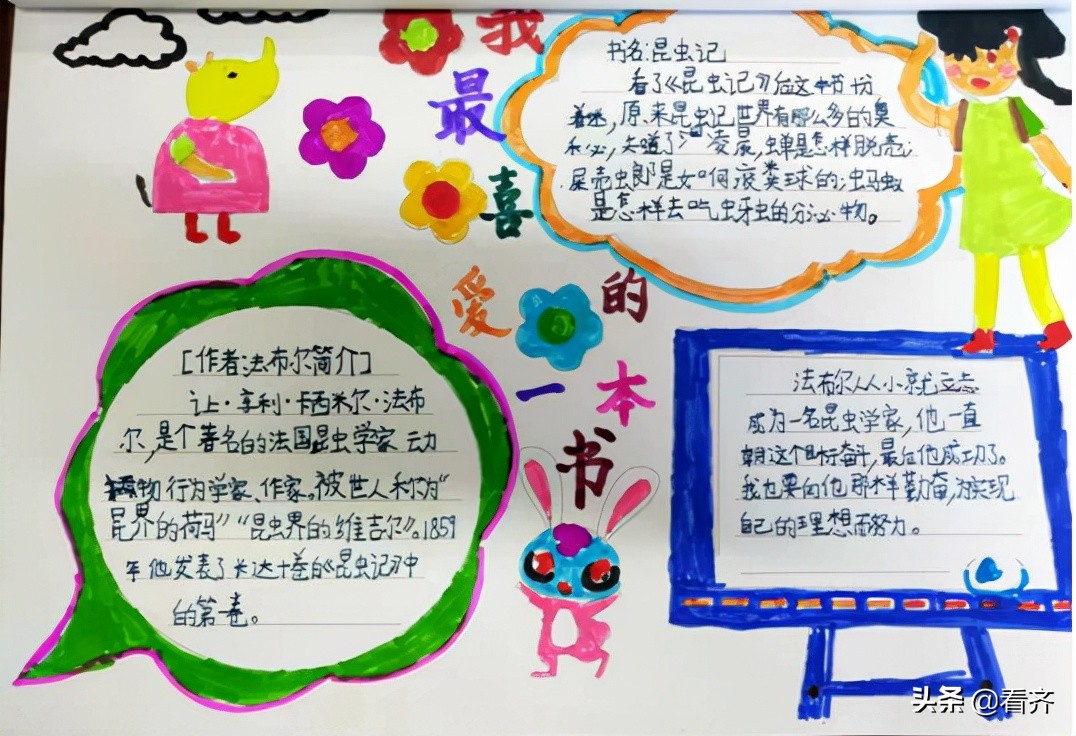 我最喜爱的一本书
书名:昆虫记
看了《昆虫记》后这本书
着迷,原来昆虫记世界有那么多的奥
知道了 凌晨,蝉是怎样脱壳;
屎壳虫郎是如何滚粪球的;蚂蚁
是怎样去吃虫牙虫的分泌物。
[作者:法布尔简介]
让·亨利·卡西米尔·法布
尔,是个著名的法国昆虫学家 动
物行为学家、作家。被世人称为“
昆界的荷马”“昆虫界的维吉尔”。1859
年他发表了长达十卷的《昆虫记》中
的第一卷。
法布尔从小就立志
成为一名昆虫学家,他一直
朝这个目标奋斗,最后他成功了。
我也要向他那样勤奋,为实现
自己的理想而努力。
头条 @看齐